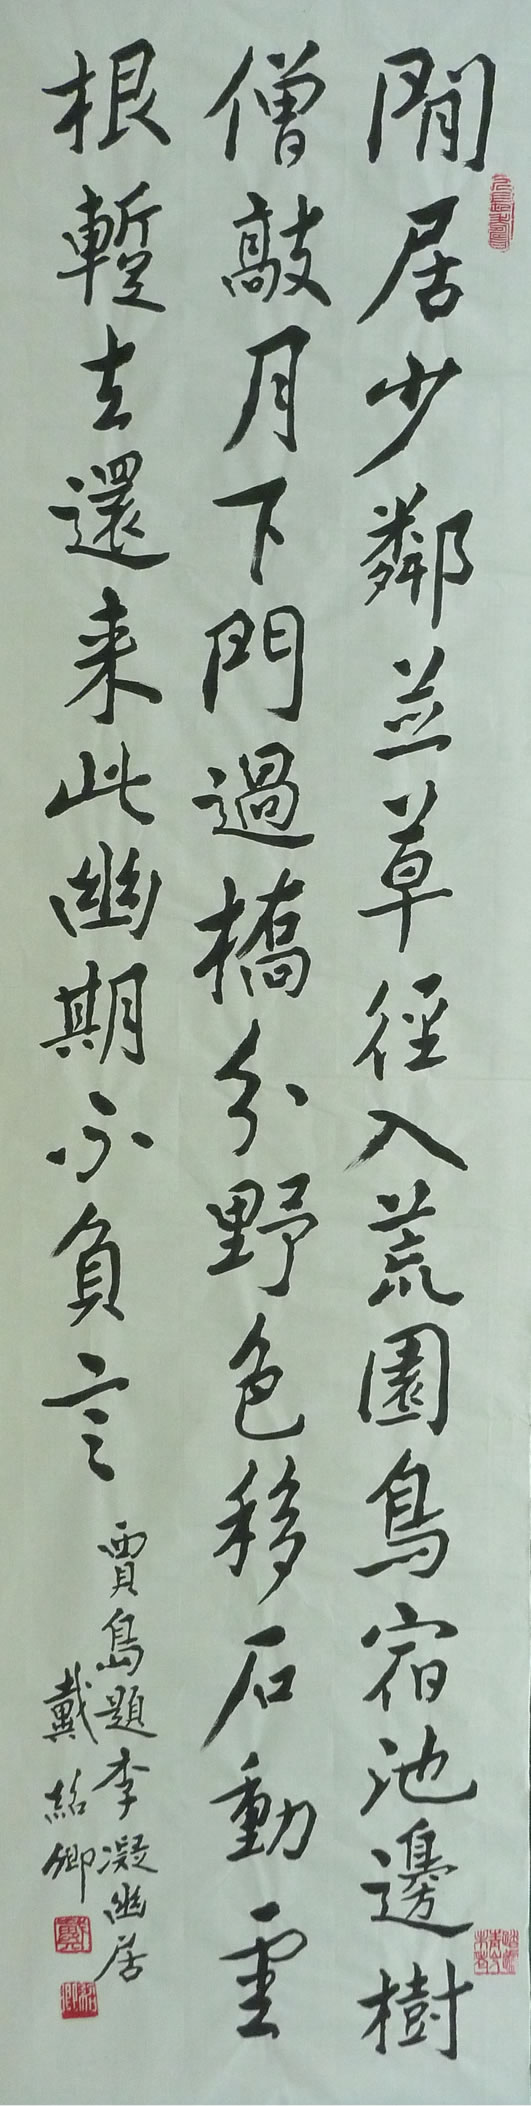 閒居少鄰並草徑入荒園鳥宿池邊樹
僧敲月下門過橋分野色移石動雲
根暫去還來此幽期不負言
賈島題李凝幽居
戴紹卿